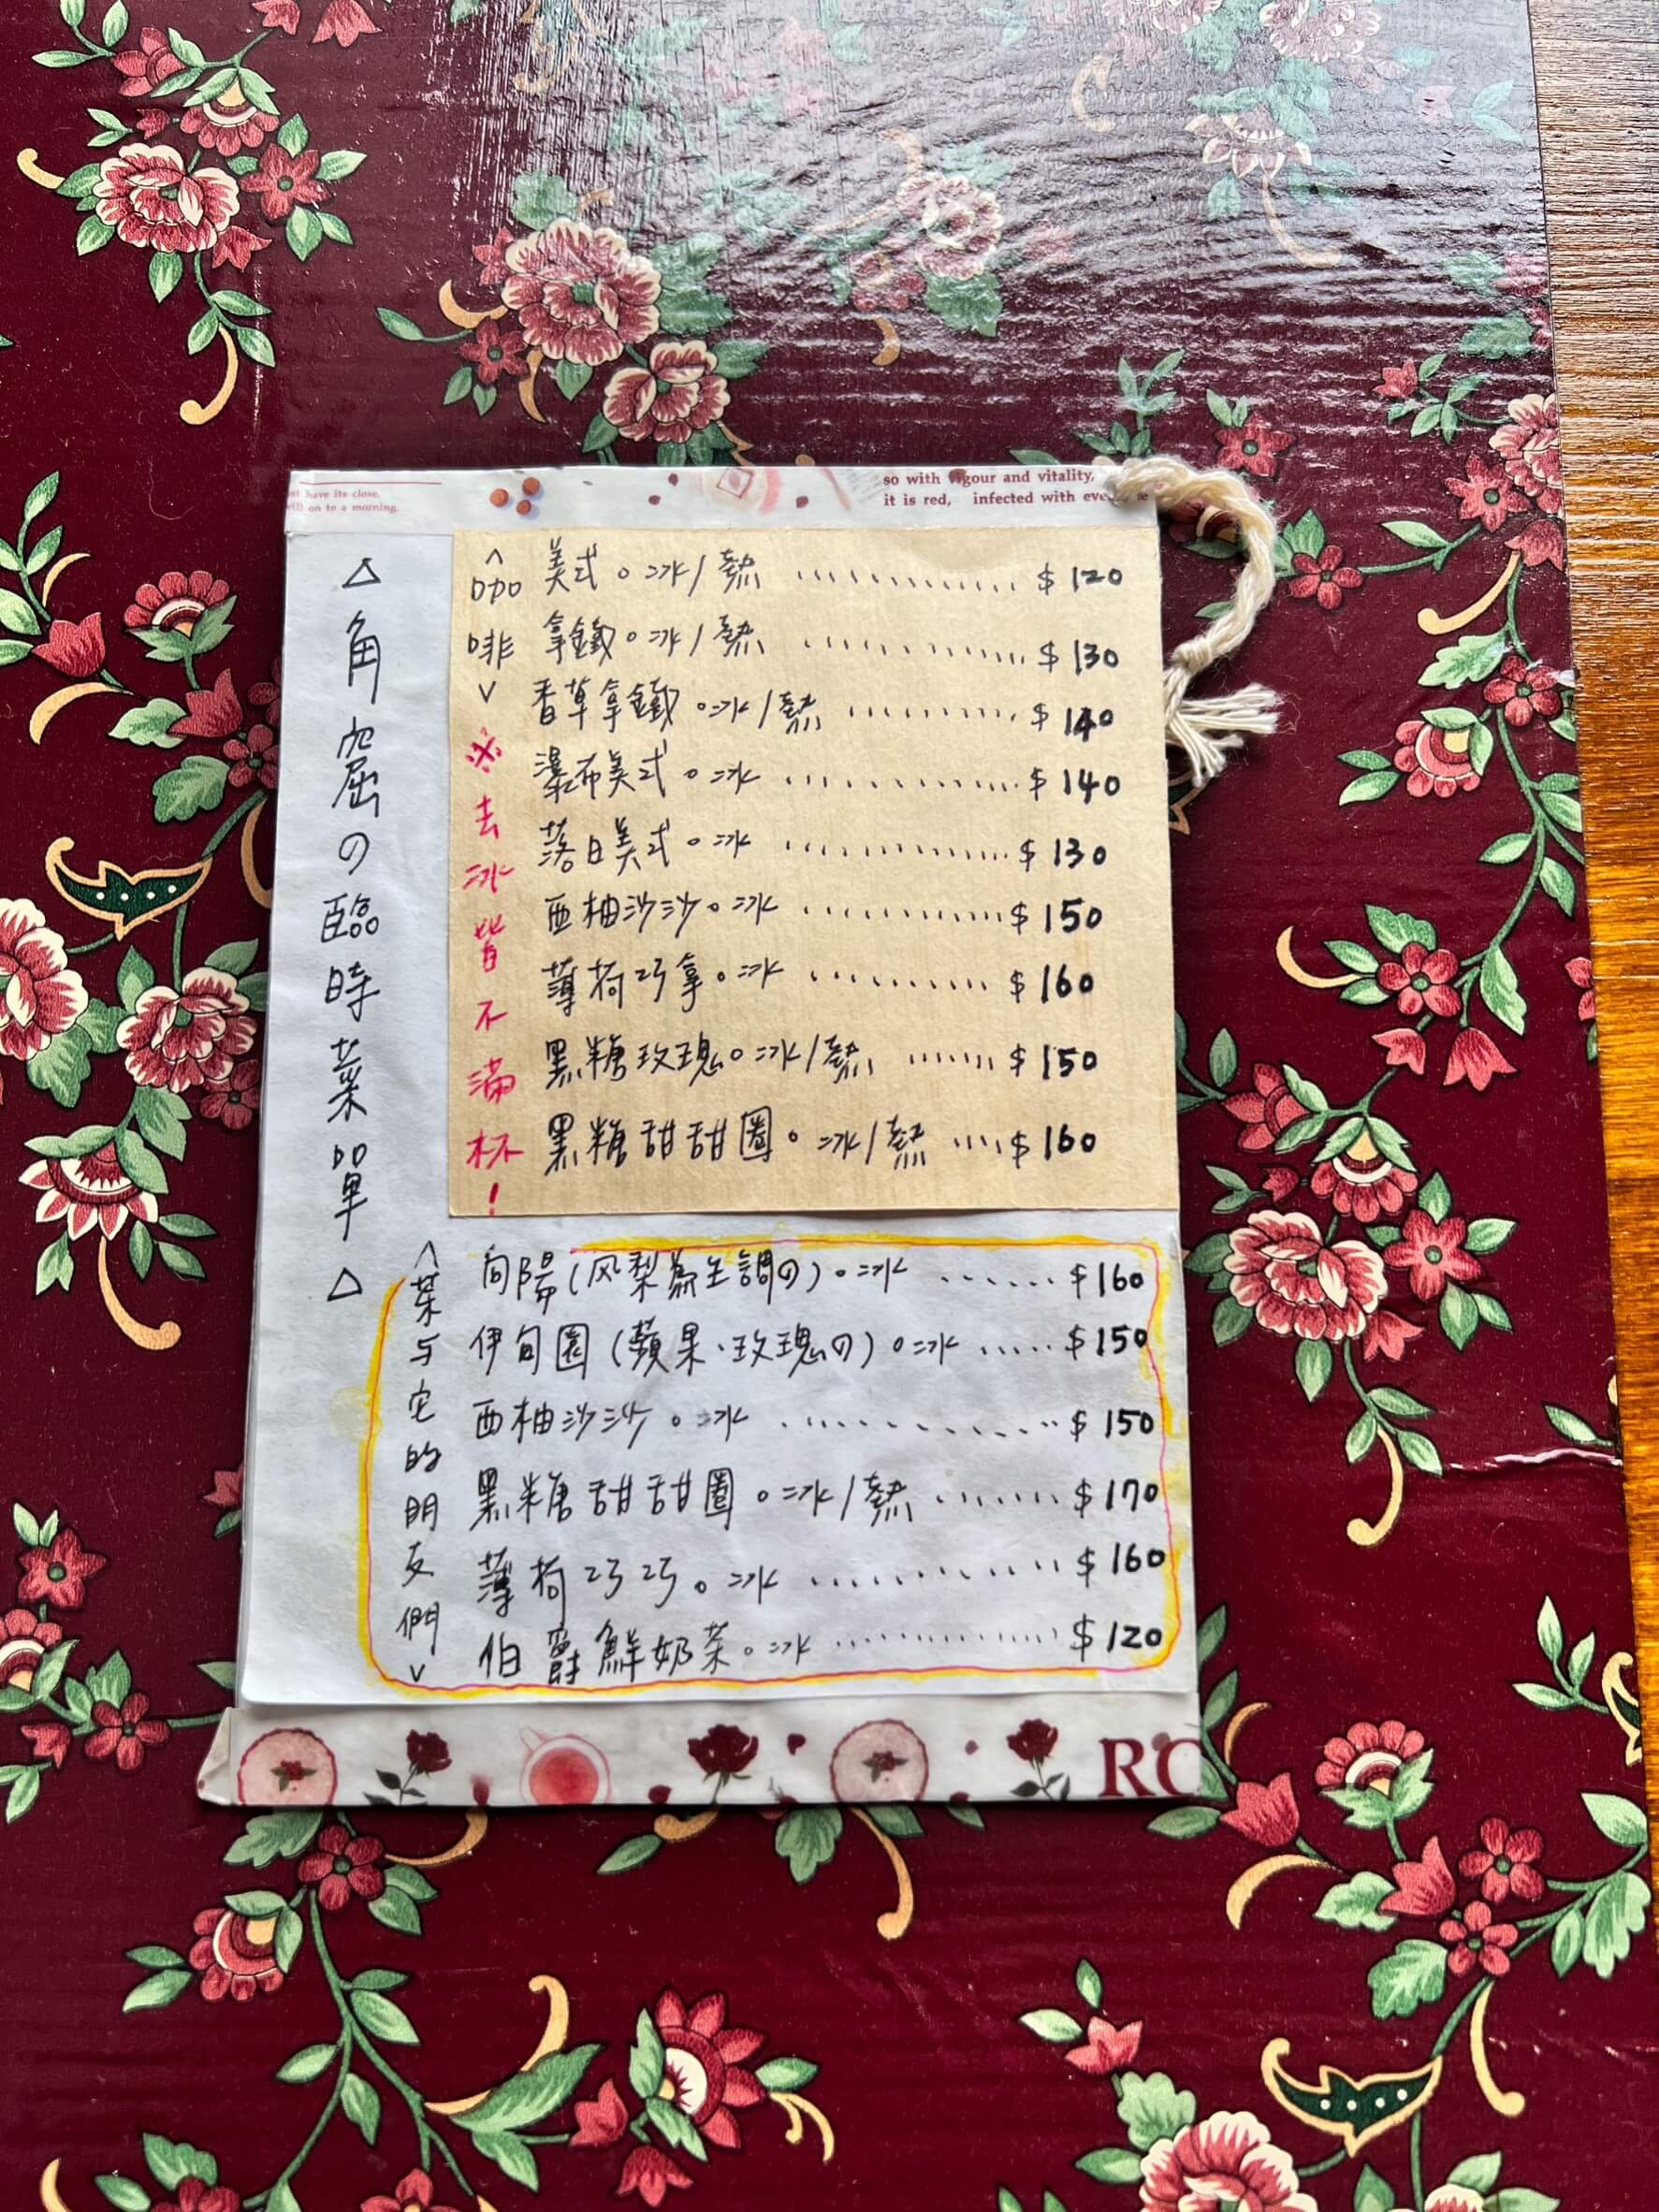 est have its close,
will on to a morning.
so with vigour and vitality,
it is red, infected with
△角窟の臨時菜單△
<咖啡>
※去冰皆不滿杯!
美式。冰/熱 ............. $120
拿鐵。冰/熱 ............. $130
香草拿鐵。冰/熱 ........... $140
瀑布美式。冰 .............. $140
落日美式。冰 .............. $130
西柚沙沙。冰 ............. $150
薄荷巧拿。冰 .......... $160
黑糖玫瑰。冰/熱 ...... $150
黑糖甜甜圈。冰/熱 .... $160
<茶与它的朋友們>
向陽(凤梨為主調の)。冰 ...... $160
伊甸園(蘋果、玫瑰の)。冰 ..... $150
西柚沙沙。冰 ............. $150
黑糖甜甜圈。冰/熱 ....... $170
薄荷巧巧。冰 ............ $160
伯爵鮮奶茶。冰 ............... $120
RO